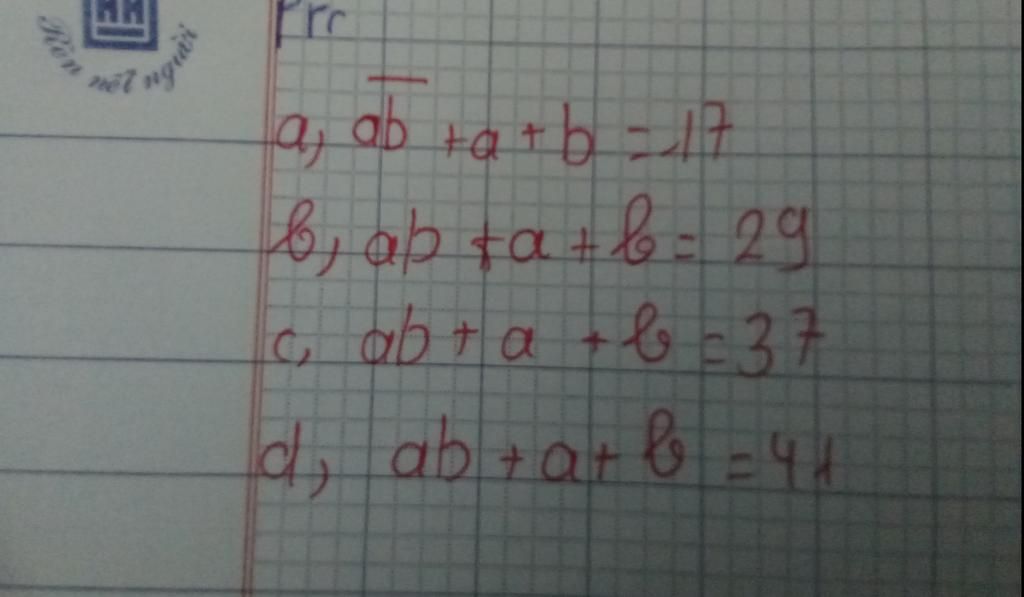 Rèn nét người
a, \overline{ab} + a + b = 17
b, ab + a + b = 29
c, ab + a + b = 37
d, ab + a + b = 41